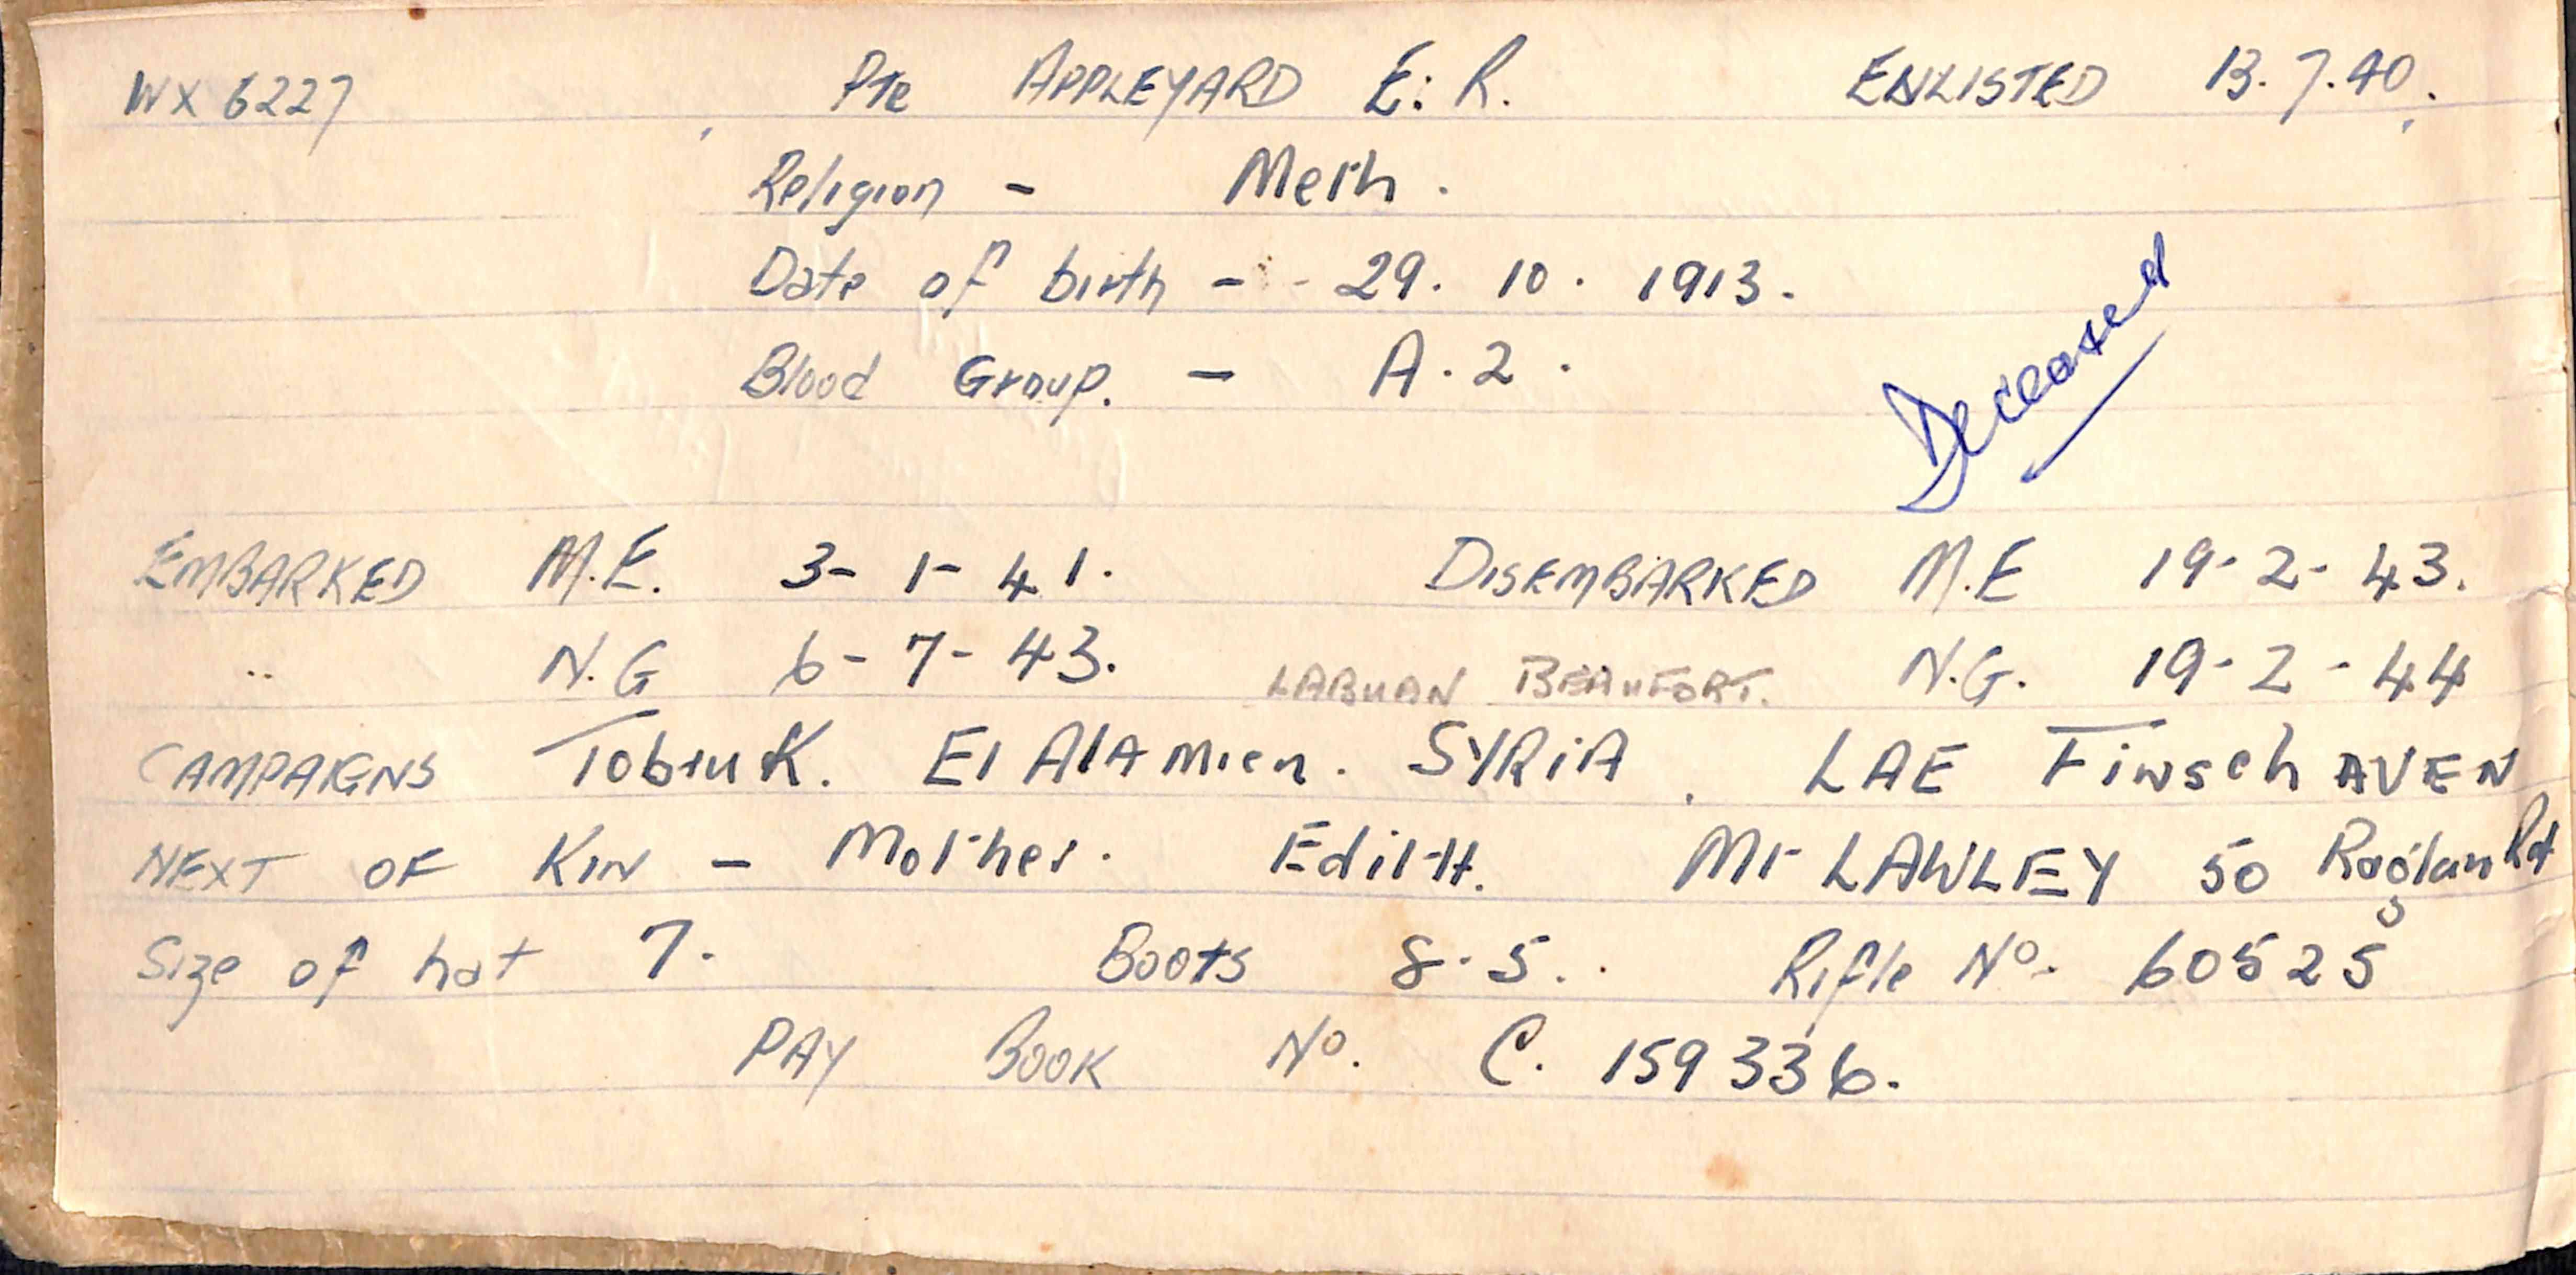 WX 6227 Pte APPLEYARD E: R. ENLISTED 13.7.40.
Religion - Meth.
Date of birth - - 29. 10. 1913.
Blood Group. - A.2.
Deceased
EMBARKED M.E. 3-1-41. DISEMBARKED M.E 19-2-43.
.. N.G 6-7-43. LABUAN BEAUFORT. N.G. 19-2-44
CAMPAIGNS Tobruk. El AlAmien. SYRiA. LAE FinschAVEN
NEXT OF KIN - Mother. EdiTH. MT LAWLEY 50 Raglan Rd
Size of hat 7. Boots 8-5. Rifle No. 60525
PAY BOOK No. C. 159336.